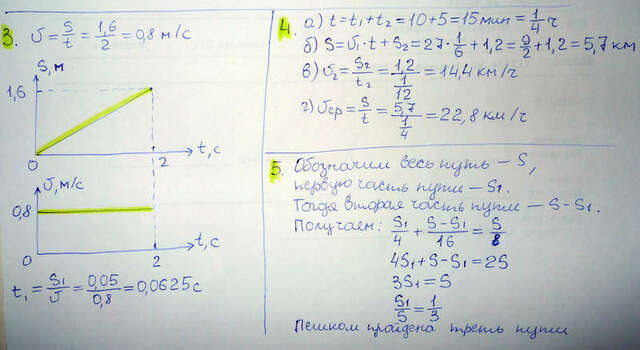 3. υ = S/t = 1,6/2 = 0,8 м/с
S, м
1,6
0
2
t, с
υ, м/с
0,8
0
2
t, с
t₁ = S₁/υ = 0,05/0,8 = 0,0625 с
4. а) t = t₁ + t₂ = 10 + 5 = 15 мин = 1/4 ч
б) S = υ₁ · t + S₂ = 27 · 1/6 + 1,2 = 9/2 + 1,2 = 5,7 км
в) υ₂ = S₂/t₂ = 1,2/(1/12) = 14,4 км/ч
г) υср = S/t = 5,7/(1/4) = 22,8 км/ч
5. Обозначим весь путь – S,
первую часть пути – S₁.
Тогда вторая часть пути – S – S₁.
Получаем: S₁/4 + (S – S₁)/16 = S/8
4S₁ + S – S₁ = 2S
3S₁ = S
S₁/S = 1/3
Пешком пройдена треть пути